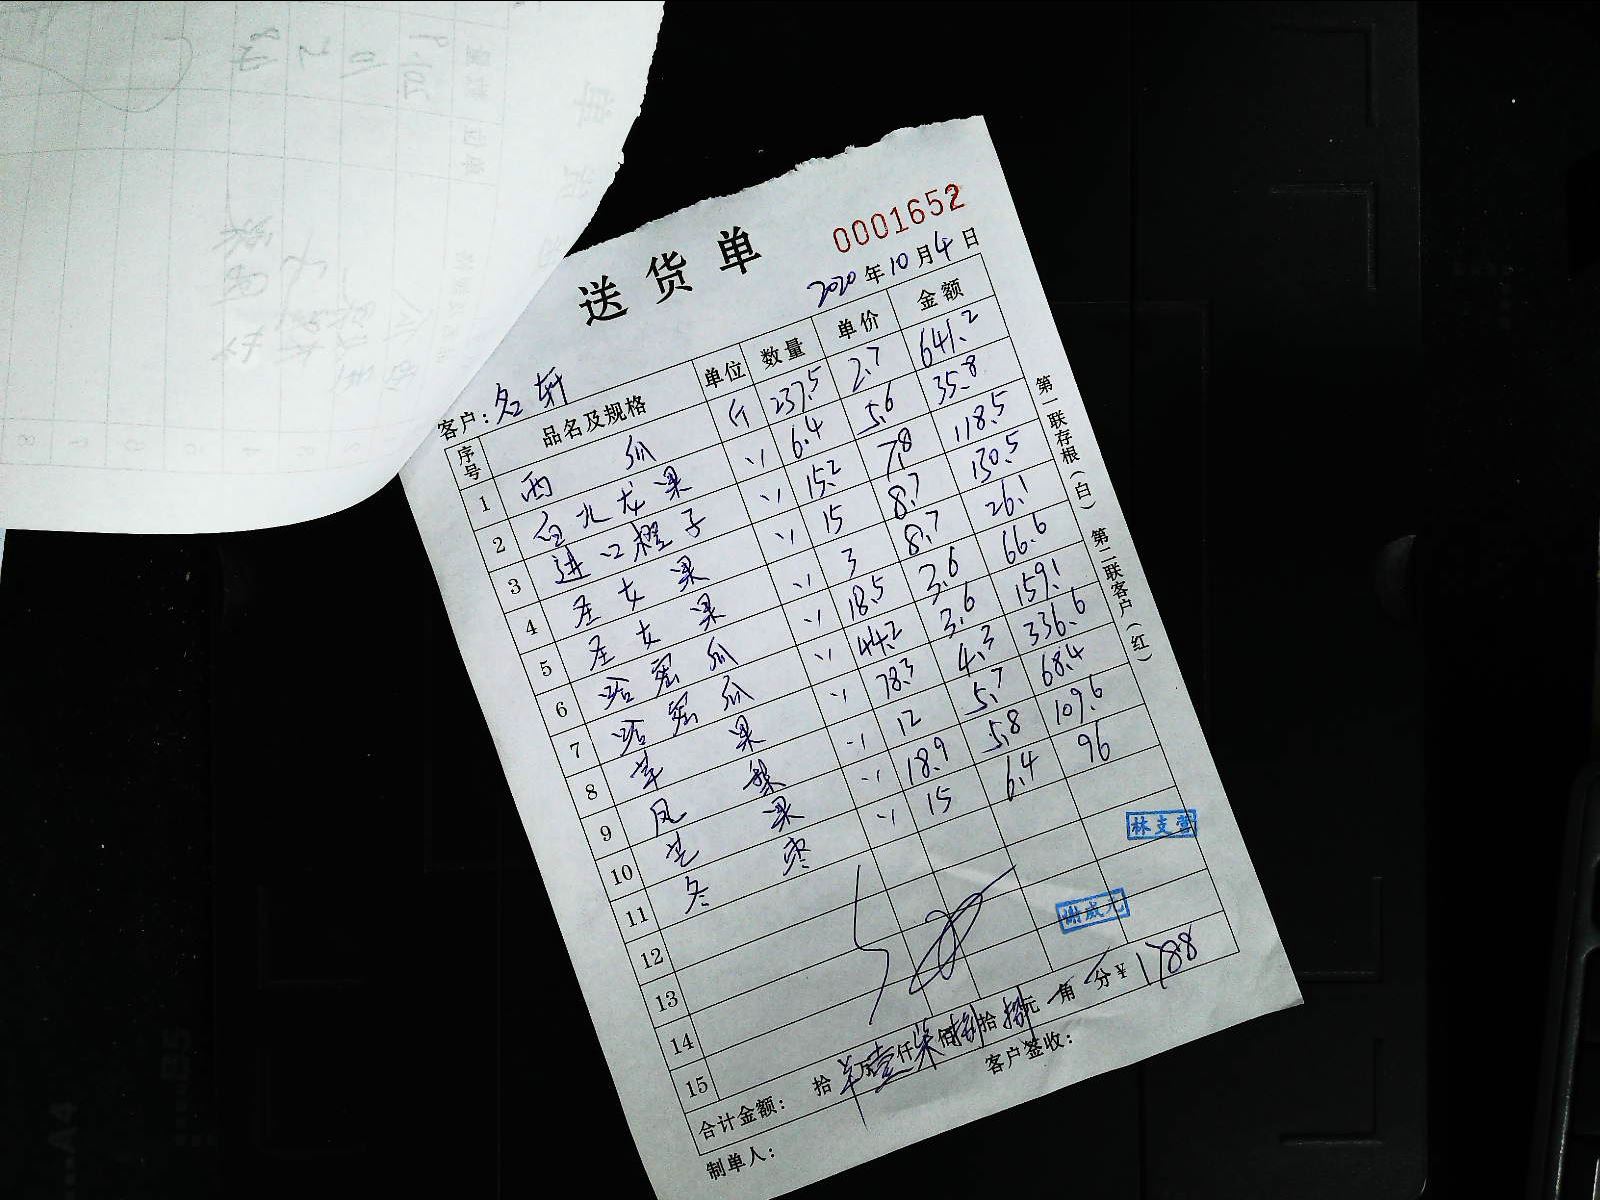 送货单
0001652
2020年10月4日
客户：名轩
序号 品名及规格 单位 数量 单价 金额
1 西瓜 斤 237.5 2.7 641.2
2 白火龙果 〃 6.4 5.6 35.8
3 进口橙子 〃 15.2 7.8 118.5
4 圣女果 〃 15 8.7 130.5
5 圣女果 〃 3 8.7 26.1
6 哈密瓜 〃 18.5 3.6 66.6
7 哈密瓜 〃 44.2 3.6 159.1
8 苹果 〃 78.3 4.3 336.6
9 凤梨 〃 12 5.7 68.4
10 芒果 〃 18.9 5.8 109.6
11 冬枣 〃 15 6.4 96
12
13
14
15
林支营
谢威元
合计金额： 拾 万壹仟柒佰捌拾捌元 角 分 ¥1788
制单人： 客户签收：
第一联存根（白） 第二联客户（红）